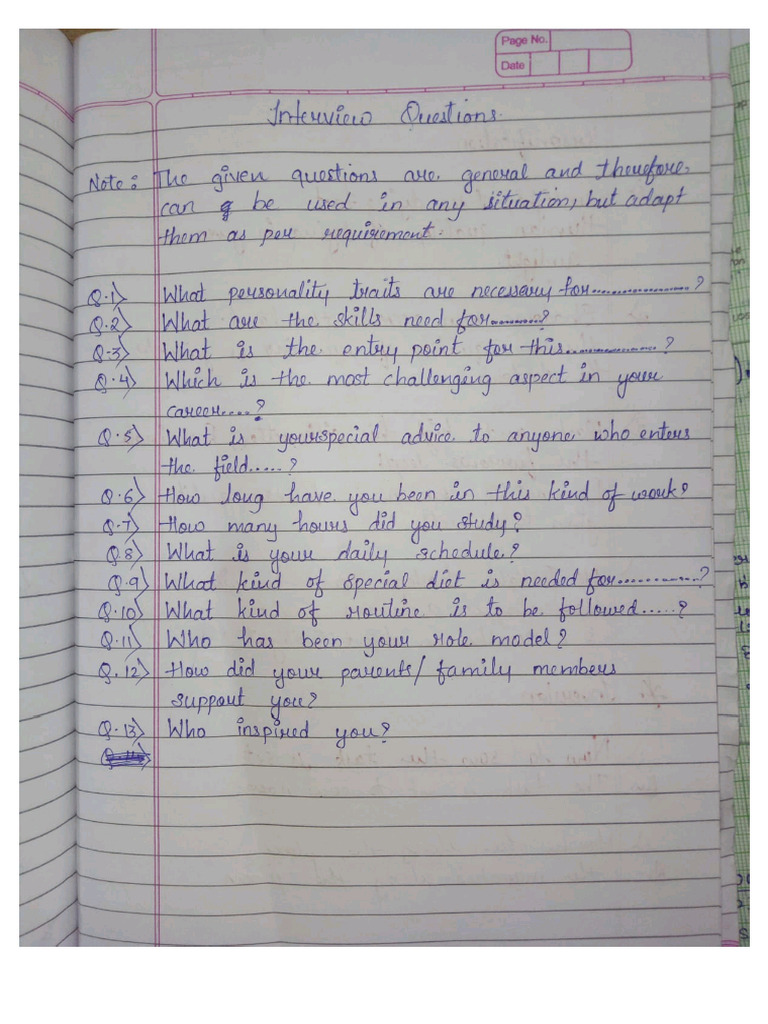 Page No.
Date
Interview Questions.
Note: The given questions are general and therefore,
can be used in any situation, but adapt
them as per requirement.
Q.1) What personality traits are necessary for..................?
Q.2) What are the skills need for..........?
Q.3) What is the entry point for this................?
Q.4) Which is the most challenging aspect in your
career....?
Q.5) What is yourspecial advice to anyone who enters
the field.....?
Q.6) How long have you been in this kind of work?
Q.7) How many hours did you study?
Q.8) What is your daily schedule?
Q.9) What kind of special diet is needed for............?
Q.10) What kind of routine is to be followed.....?
Q.11) Who has been your role model?
Q.12) How did your parents/family members
support you?
Q.13) Who inspired you?